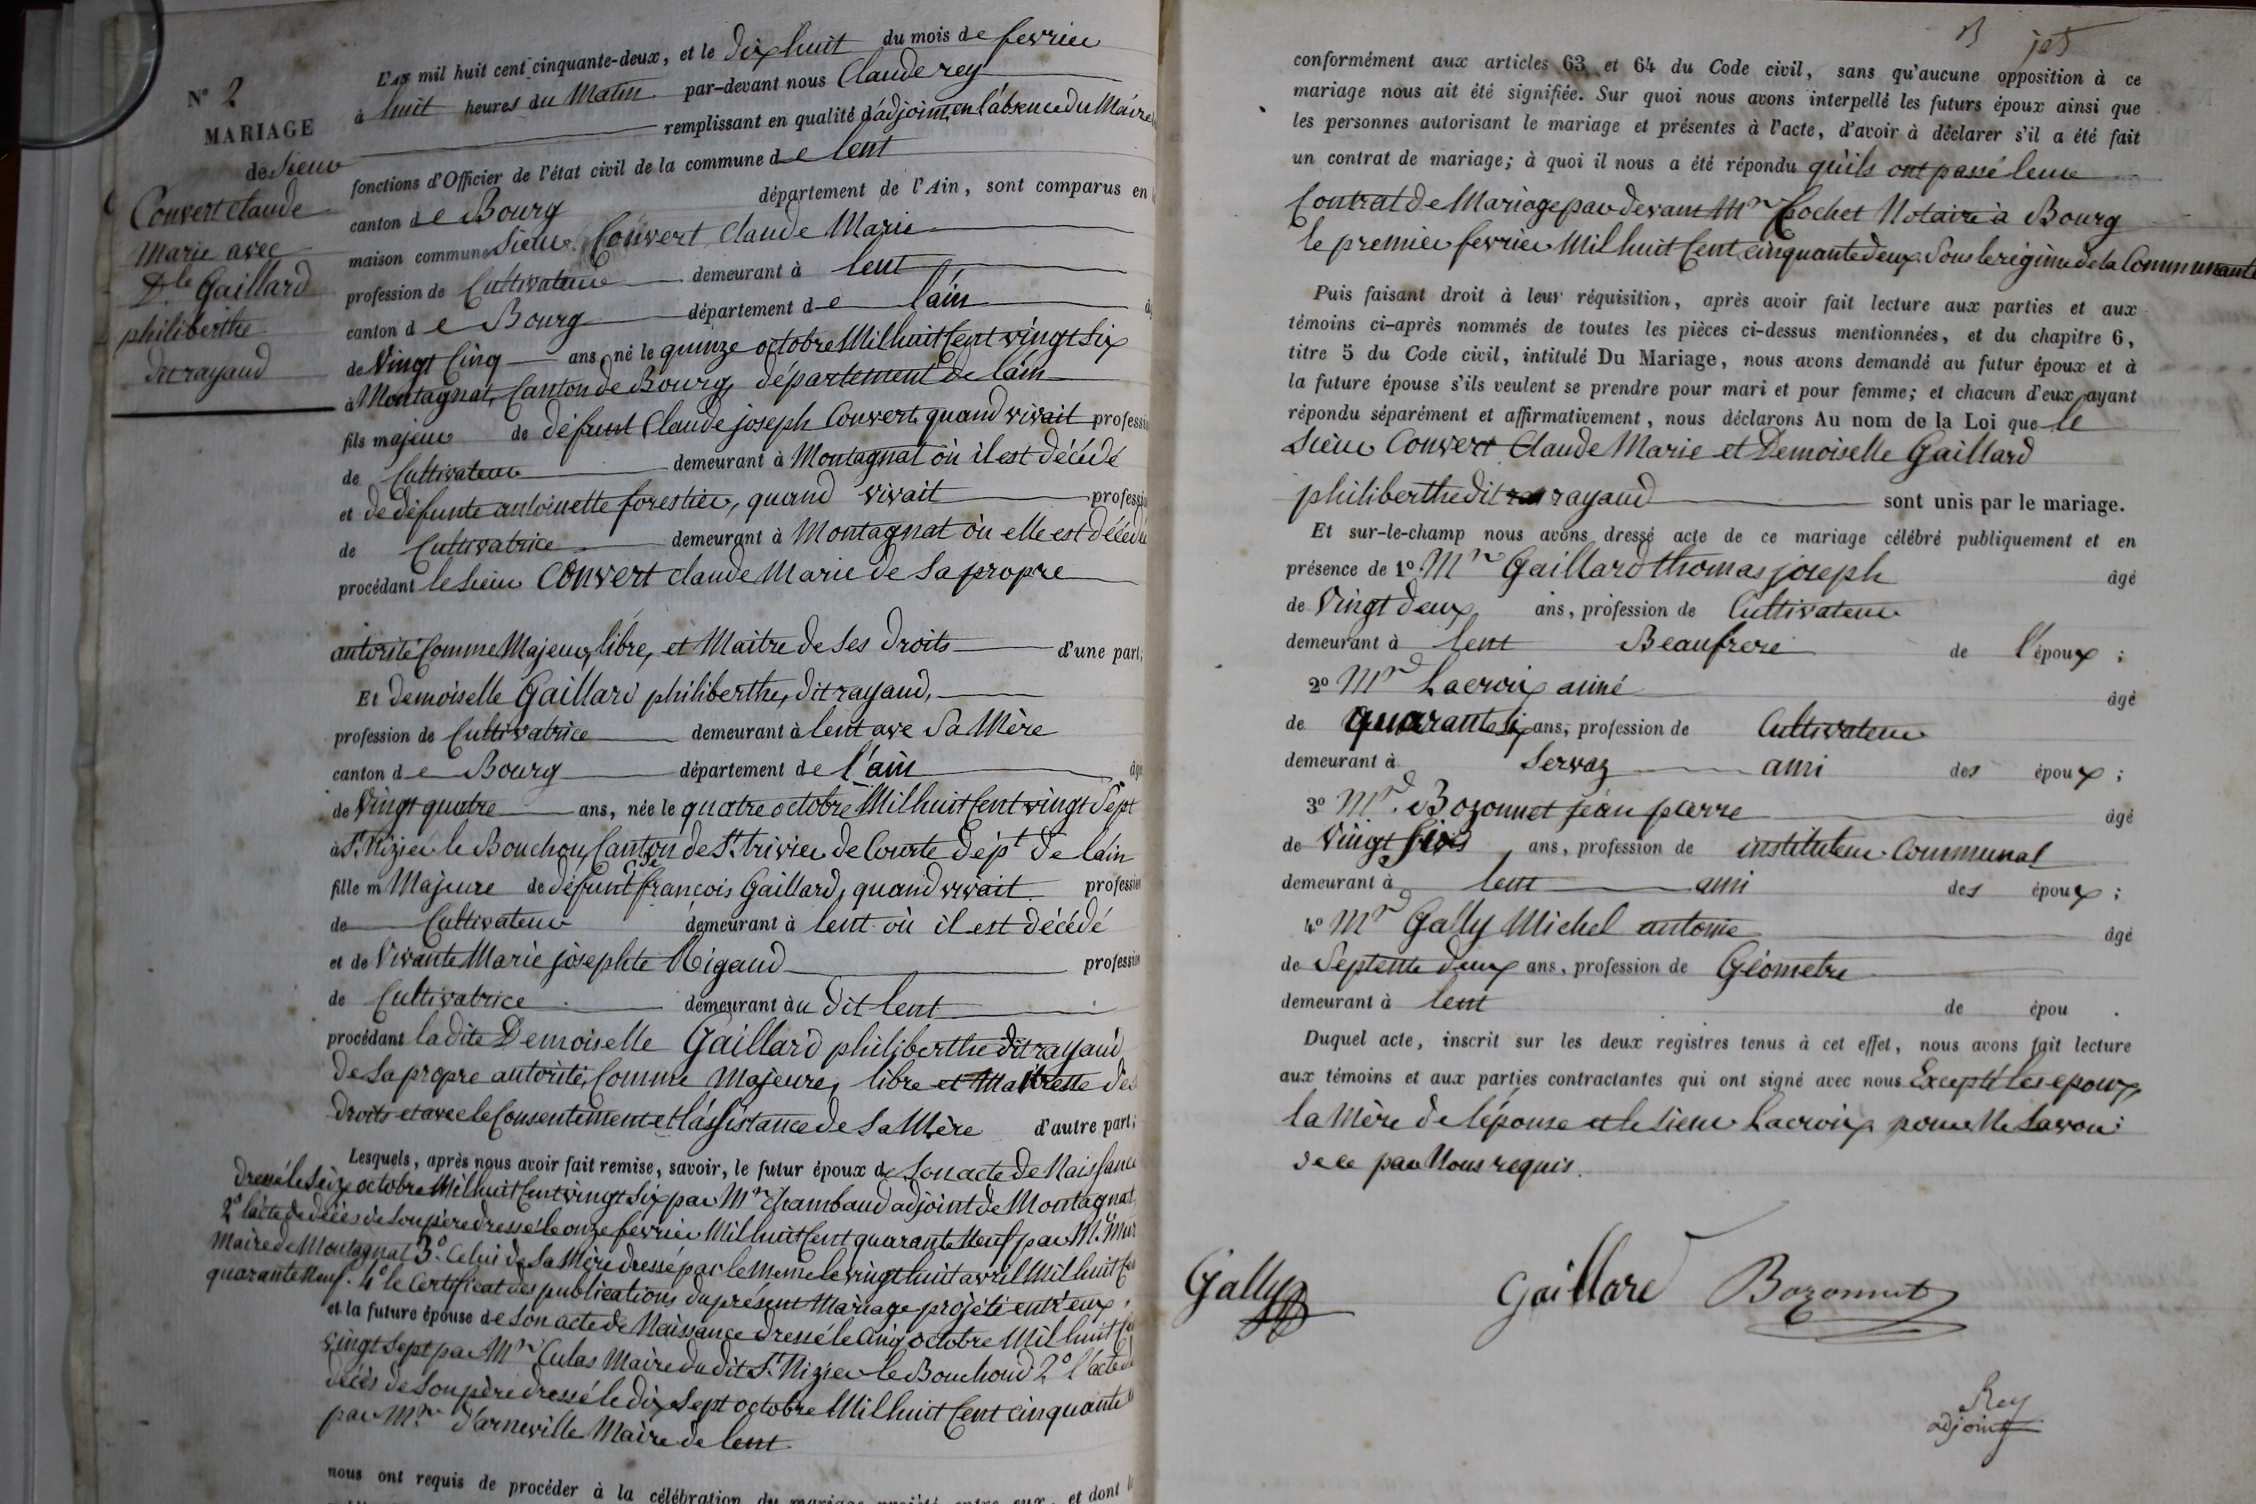 N° 2
MARIAGE
de Sieur
Convert Claude
Marie avec
Dlle Gaillard
philiberthe
dit rayaud
L'AN mil huit cent cinquante-deux, et le dix huit du mois de fevrier
à huit heures du Matin par-devant nous Claude rey
remplissant en qualité d'adjoint, en l'absence du Maire
fonctions d'Officier de l'état civil de la commune de lent
canton de Bourg département de l'Ain, sont comparus en
maison commune Sieur Convert Claude Marie
profession de Cultivateur demeurant à lent
canton de Bourg département de lain
de Vingt Cinq ans, né le quinze octobre Mil huit Cent vingt Six
à Montagnat, Canton de Bourg, département de lain
fils majeur de défunt Claude joseph Convert, quand vivait profession
de Cultivateur demeurant à Montagnat où il est décédé
et de défunte antoinette forestier, quand vivait profession
de Cultivatrice demeurant à Montagnat où elle est décédée
procédant le sieur Convert Claude Marie de Sa propre
autorité Comme Majeur, libre, et Maitre de Ses Droits d'une part;
Et demoiselle Gaillard philiberthe, dit rayaud,
profession de Cultivatrice demeurant à lent ave Sa Mère
canton de Bourg département de l'ain
de Vingt quatre ans, née le quatre octobre Mil huit Cent vingt Sept
à St. Nizier le Bouchou, Canton de St. trivier de Courte dépt. de lain
fille m Majeure de défunt françois Gaillard, quand vivait profession
de Cultivateur demeurant à lent où il est décédé
et de Vivante Marie josephte Rigaud profession
de Cultivatrice demeurant àu dit lent
procédant la dite Demoiselle Gaillard philiberthe dit rayaud
de Sa propre autorité, Comme Majeure, libre et Maitresse des
droits et avec le Consentement et l'assistance de Sa Mère d'autre part;
Lesquels, après nous avoir fait remise, savoir, le futur époux de Son acte de Naissance
dressé le Seize octobre Mil huit Cent vingt Six par Mr Chambaud adjoint de Montagnat
2° l'acte de décès de Son père dressé le onze février Mil huit Cent quarante Neuf par Mr.
Maire de Montagnat 3° Celui de Sa Mère dressé par le meme le vingt huit avril Mil huit
quarante Neuf. 4° le Certificat des publications du présent Mariage projété entr'eux,
et la future épouse de Son acte de Naissance dressé le Cinq octobre Mil huit
vingt Sept par Mr Culas Maire du dit St. Nizier le Bouchoud 2° l'acte de
décès de Son père dressé le dix Sept octobre Mil huit Cent cinquante
par Mr. d'arneville Maire de lent
nous ont requis de procéder à la célébration du mariage projeté entre eux, et dont
conformément aux articles 63 et 64 du Code civil, sans qu'aucune opposition à ce
mariage nous ait été signifiée. Sur quoi nous avons interpellé les futurs époux ainsi que
les personnes autorisant le mariage et présentes à l'acte, d'avoir à déclarer s'il a été fait
un contrat de mariage; à quoi il nous a été répondu qu'ils ont passé leur
Contrat de Mariage par devant Mr Cochet Notaire à Bourg
le premier fevrier Mil huit Cent cinquante deux Sous le régime de la Communauté
Puis faisant droit à leur réquisition, après avoir fait lecture aux parties et aux
témoins ci-après nommés de toutes les pièces ci-dessus mentionnées, et du chapitre 6,
titre 5 du Code civil, intitulé Du Mariage, nous avons demandé au futur époux et à
la future épouse s'ils veulent se prendre pour mari et pour femme; et chacun d'eux ayant
répondu séparément et affirmativement, nous déclarons Au nom de la Loi que le
Sieur Convert Claude Marie et Demoiselle Gaillard
philiberthe dit rayaud sont unis par le mariage.
Et sur-le-champ nous avons dressé acte de ce mariage célébré publiquement et en
présence de 1° Mr Gaillard thomas joseph âgé
de Vingt deux ans, profession de Cultivateur
demeurant à lent Beaufrere de l'époux;
2° Mr Lacroix aimé âgé
de quarante Six ans, profession de Cultivateur
demeurant à Servaz ami des époux;
3° Mr. Bozonnet jean pierre âgé
de Vingt ans, profession de instituteur Communal
demeurant à lent ami des époux;
4° Mr Gally Michel antoine âgé
de Septente deux ans, profession de Géometre
demeurant à lent de épou .
Duquel acte, inscrit sur les deux registres tenus à cet effet, nous avons fait lecture
aux témoins et aux parties contractantes qui ont signé avec nous Excepté les epoux,
la Mère de l'épouse et le Sieur Lacroix pour Ne Savoir
de ce par Nous requis.
Gally Gaillard Bozonnet
Rey
adjoint